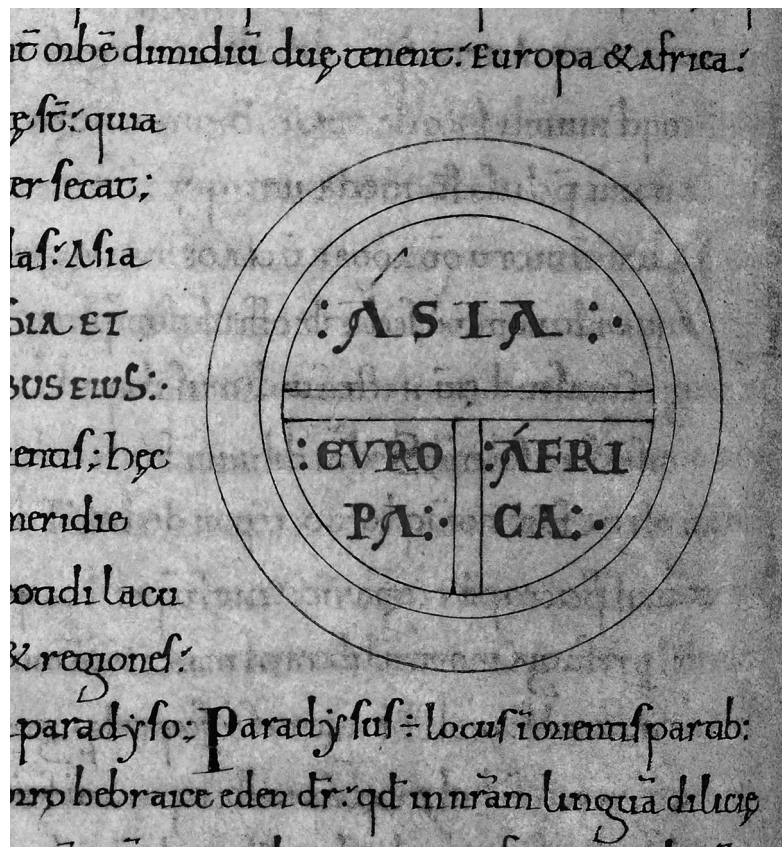 orbē dimidiū duę tenent: Europa & Africa:
ę st̄: quia
er secat;
las: Asia
ET
BUS EIUS:·
entis; hęc
meridie
lacu
& regiones:
:ASIA:·
:EVRO
PA:·
:AFRI
CA:·
paradẏso; Paradẏsus ÷ locus ī orientis partib:
hebraice eden dr̄: qd̄ in nr̄am linguā dilicię